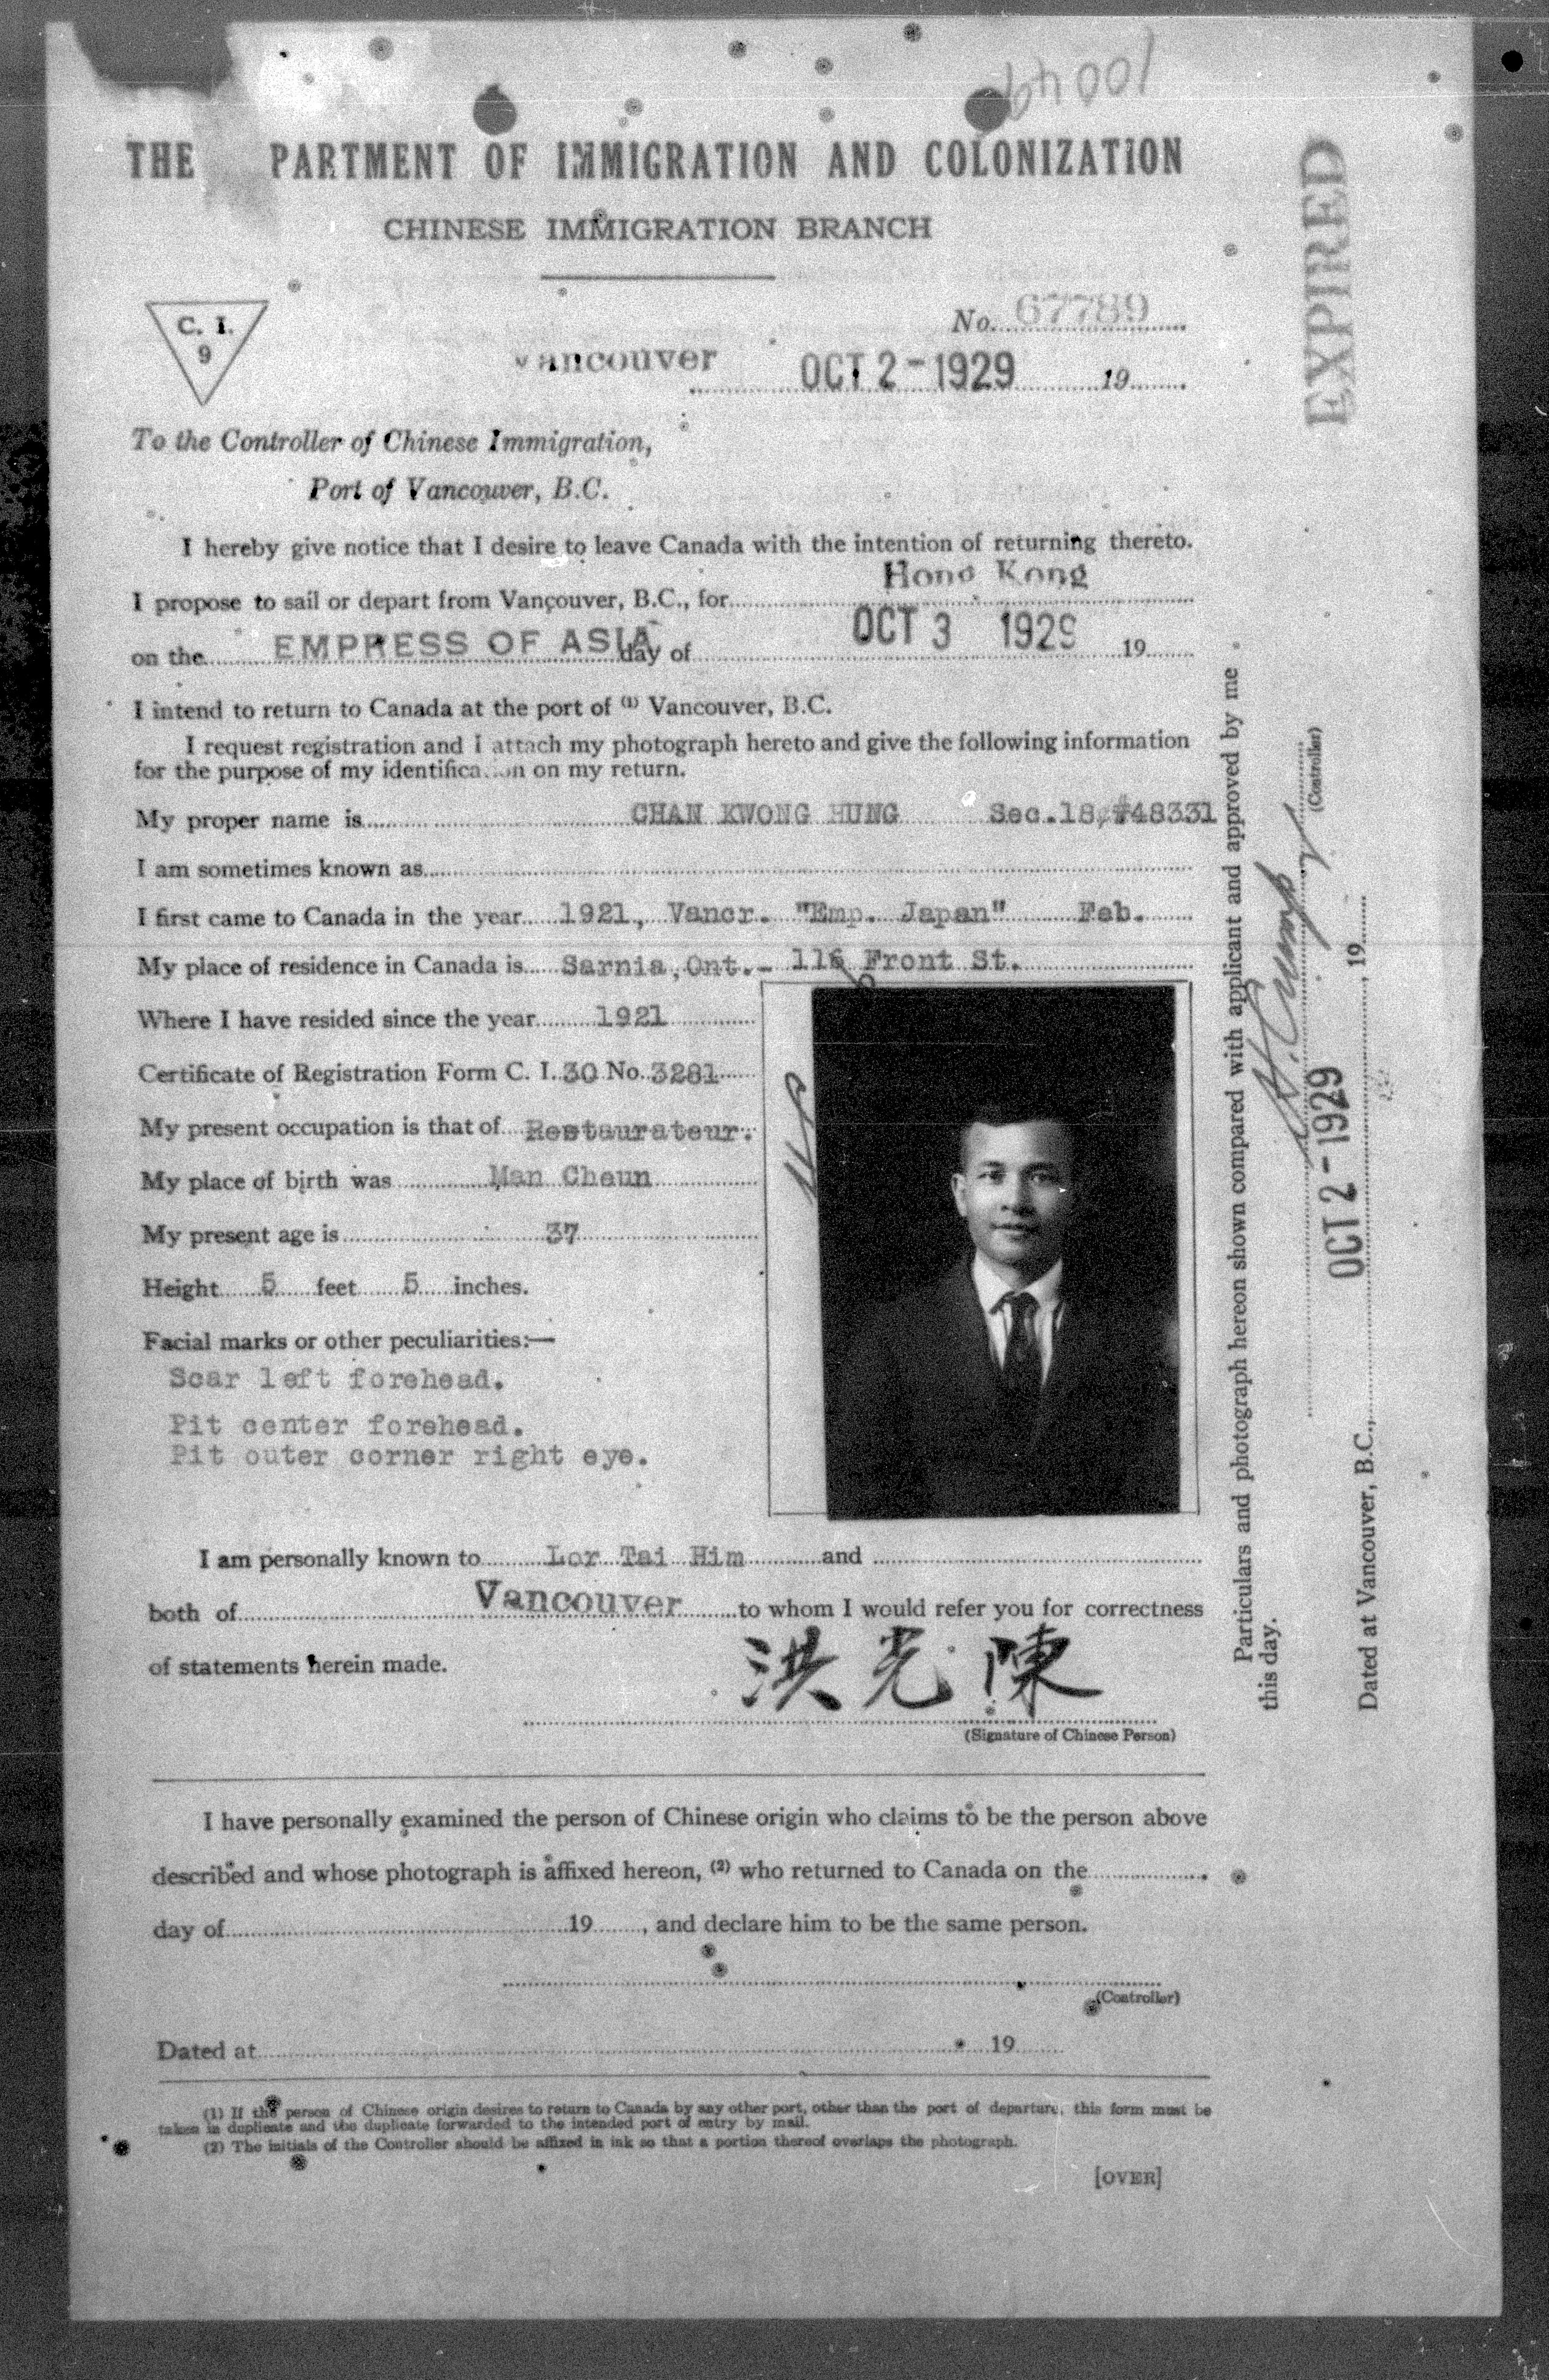 10049
THE PARTMENT OF IMMIGRATION AND COLONIZATION
CHINESE IMMIGRATION BRANCH
C. I.
9
No. 67789
Vancouver OCT 2 - 1929 19
To the Controller of Chinese Immigration,
Port of Vancouver, B.C.
I hereby give notice that I desire to leave Canada with the intention of returning thereto.
I propose to sail or depart from Vancouver, B.C., for Hong Kong
on the EMPRESS OF ASIA day of OCT 3 1929 19
I intend to return to Canada at the port of (1) Vancouver, B.C.
I request registration and I attach my photograph hereto and give the following information
for the purpose of my identification on my return.
My proper name is CHAN KWONG HUNG Sec.18,#48331
I am sometimes known as
I first came to Canada in the year 1921, Vancr. "Emp. Japan" Feb.
My place of residence in Canada is Sarnia, Ont.- 116 Front St.
Where I have resided since the year 1921
Certificate of Registration Form C. I. 30 No. 3281
My present occupation is that of Restaurateur.
My place of birth was Man Cheun
My present age is 37
Height 5 feet 5 inches.
Facial marks or other peculiarities:—
Scar left forehead.
Pit center forehead.
Pit outer corner right eye.
I am personally known to Lor Tai Him and
both of Vancouver to whom I would refer you for correctness
of statements herein made.
洪光陳
(Signature of Chinese Person)
I have personally examined the person of Chinese origin who claims to be the person above
described and whose photograph is affixed hereon, (2) who returned to Canada on the
day of 19 , and declare him to be the same person.
(Controller)
Dated at 19
(1) If the person of Chinese origin desires to return to Canada by any other port, other than the port of departure, this form must be
taken in duplicate and the duplicate forwarded to the intended port of entry by mail.
(2) The initials of the Controller should be affixed in ink so that a portion thereof overlaps the photograph.
[OVER]
EXPIRED
Particulars and photograph hereon shown compared with applicant and approved by me
this day.
(Controller)
OCT 2 - 1929
Dated at Vancouver, B.C., , 19